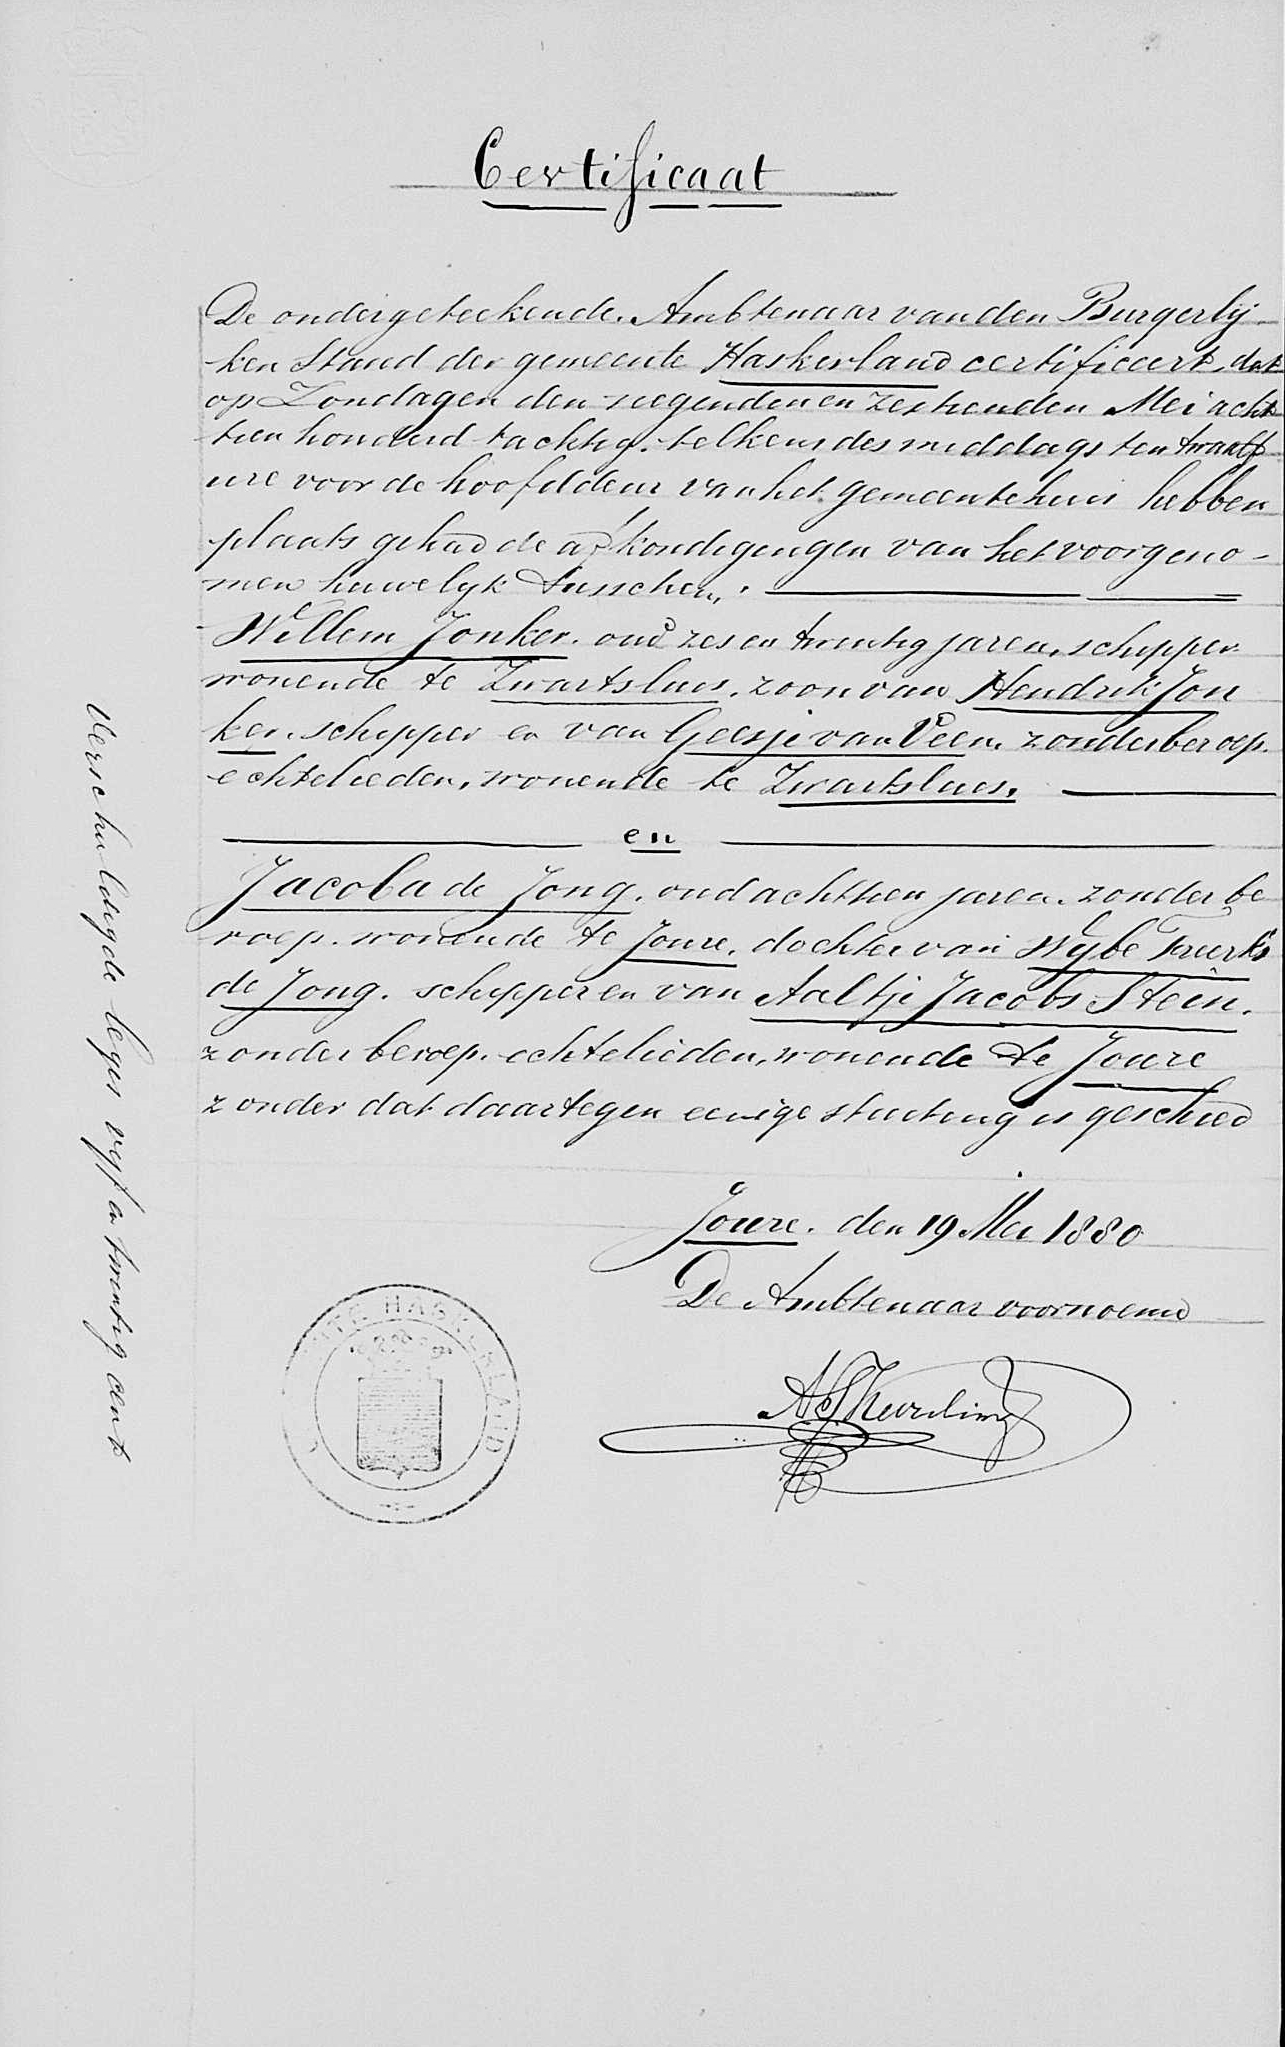 Certificaat
De ondergeteekende Ambtenaar van den Burgerlij-
ken Stand der gemeente Haskerland certificeert, dat
op Zondagen den negenden en zestienden Mei acht
tien honderd tachtig telkens des middags ten twaalf
ure voor de hoofddeur van het gemeentehuis hebben
plaats gehad de afkondigingen van het voorgeno-
men huwelijk tusschen
Willem Jonker oud zes en twintig jaren, schipper
wonende te Zwartsluis, zoon van Hendrik Jon
ker, schipper en van Geesje van Veen zonder beroep.
echtelieden, wonende te Zwartsluis,
en
Jacoba de Jong, oud achttien jaren, zonder be
roep. wonende te Joure, dochter van Wybe
de Jong. schipper en van Aaltje Jacobs Stein,
zonder beroep. echtelieden, wonende te Joure
zonder dat daartegen eenige stuiting is geschied
Joure. den 19 Mei 1880
De Ambtenaar voornoemd
Verschuldigde leges vijf en twintig cent
HASKERLAND